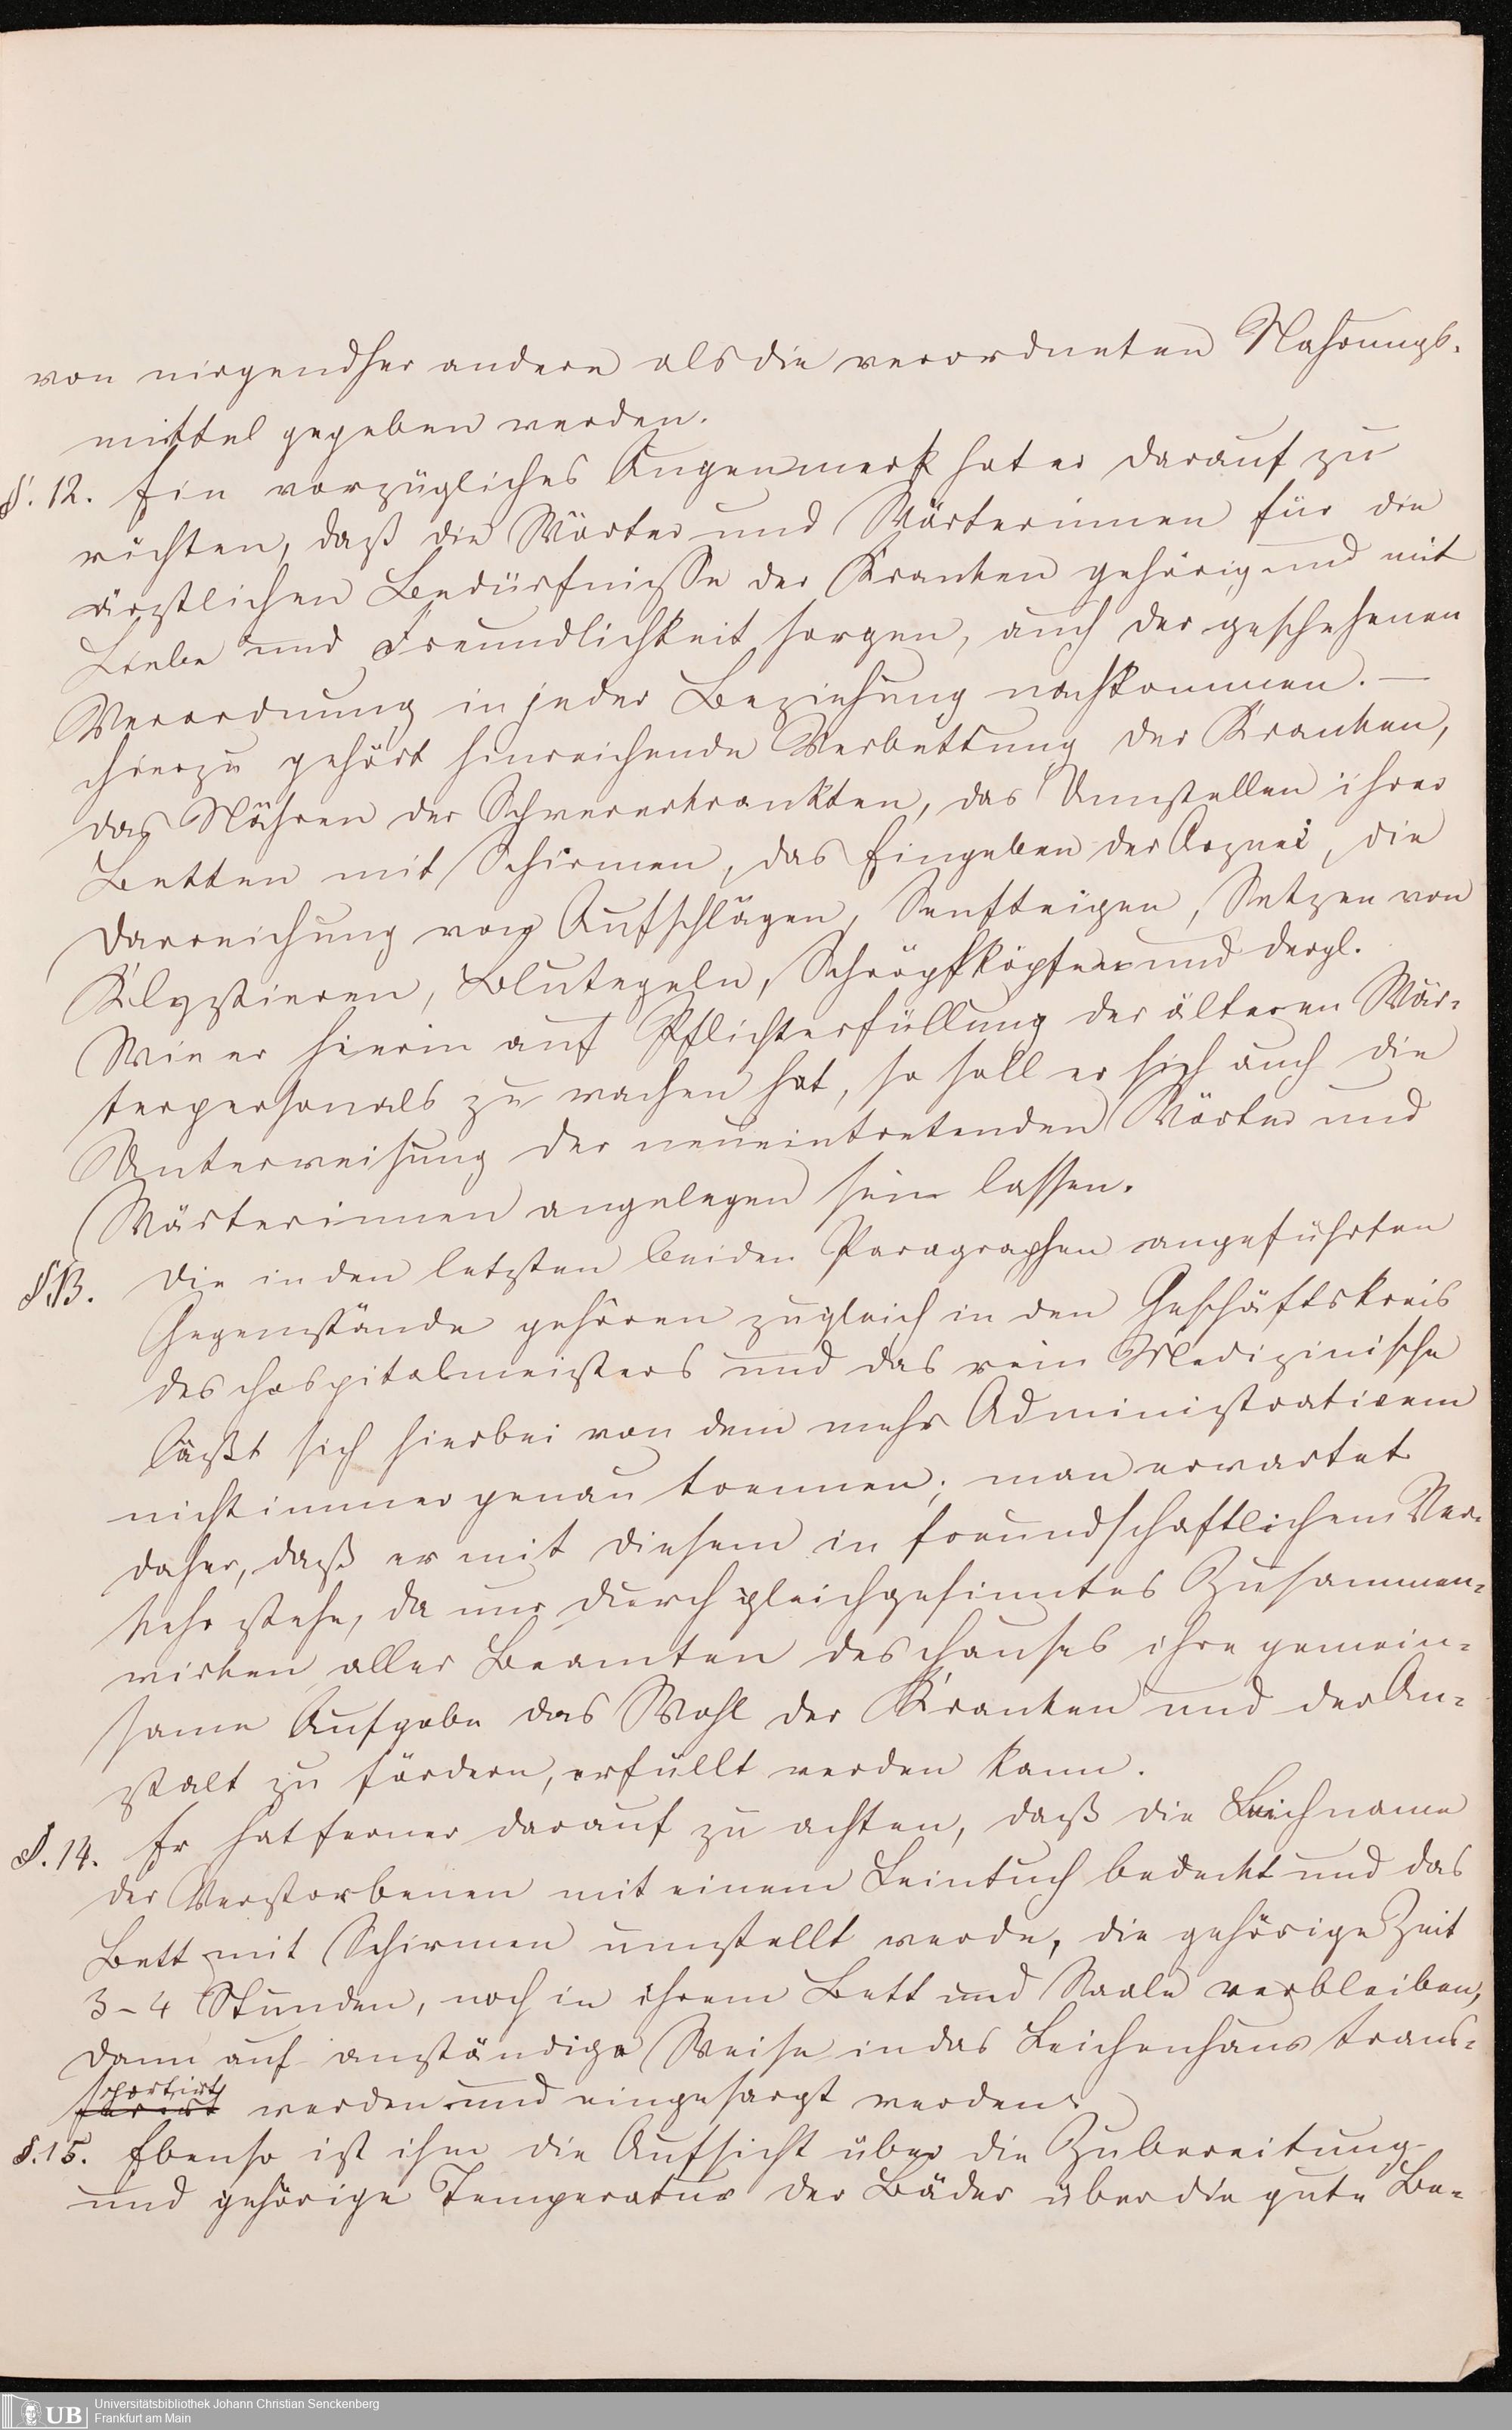 von nirgendher andere als die verordneten Nahrungs-
mittel gegeben werden.
§. 12. Ein vorzügliches Augenmerk hat er darauf zu
richten, daß die Wärter und Wärterinnen für die
ärztlichen Bedürfnisse der Kranken gehörig und mit
Liebe und Freundlichkeit sorgen, auch der geschehenen
Verordnung in jeder Beziehung nachkommen. —
Hierzu gehört hinreichende Verbettung der Kranken,
das Nähren der Schwererkrankten, das Umstellen ihrer
Betten mit Schirmen, das Eingeben der Arznei, die
Darreichung von Aufschlägen, Senfteigen, Setzen von
Klystieren, Blutegeln, Schröpfköpfen und dergl.
Wie er hierin auf Pflichterfüllung der älteren Wär-
terpersonals zu wachen hat, so soll er sich auch die
Unterweisung der neueintretenden Wärter und
Wärterinnen angelegen sein lassen.
§. 13. Die in den letzten beiden Paragraphen angeführten
Gegenstände gehören zugleich in den Geschäftskreis
des Hospitalmeisters und das rein Medizinische
läßt sich hierbei von dem mehr Administrativem
nicht immer genau trennen; man erwartet
daher, daß er mit diesem in freundschaftlichem Ver-
kehr stehe, da nur durch gleichgesinntes Zusammen-
wirken aller Beamten des Hauses ihre gemein-
same Aufgabe das Wohl der Kranken und der An-
stalt zu fördern, erfüllt werden kann.
§. 14. Er hat ferner darauf zu achten, daß die Leichname
der Verstorbenen mit einem Leintuch bedeckt und das
Bett mit Schirmen umstellt werde, die gehörige Zeit
3-4 Stunden, noch in ihrem Bett und Saale verbleiben,
dann auf anständige Weise in das Leichenhaus trans-
portirt werden und eingesargt werden.
§. 15. Ebenso ist ihm die Aufsicht über die Zubereitung
und gehörige Temperatur der Bäder über die gute Be-
UB Universitätsbibliothek Johann Christian Senckenberg
Frankfurt am Main